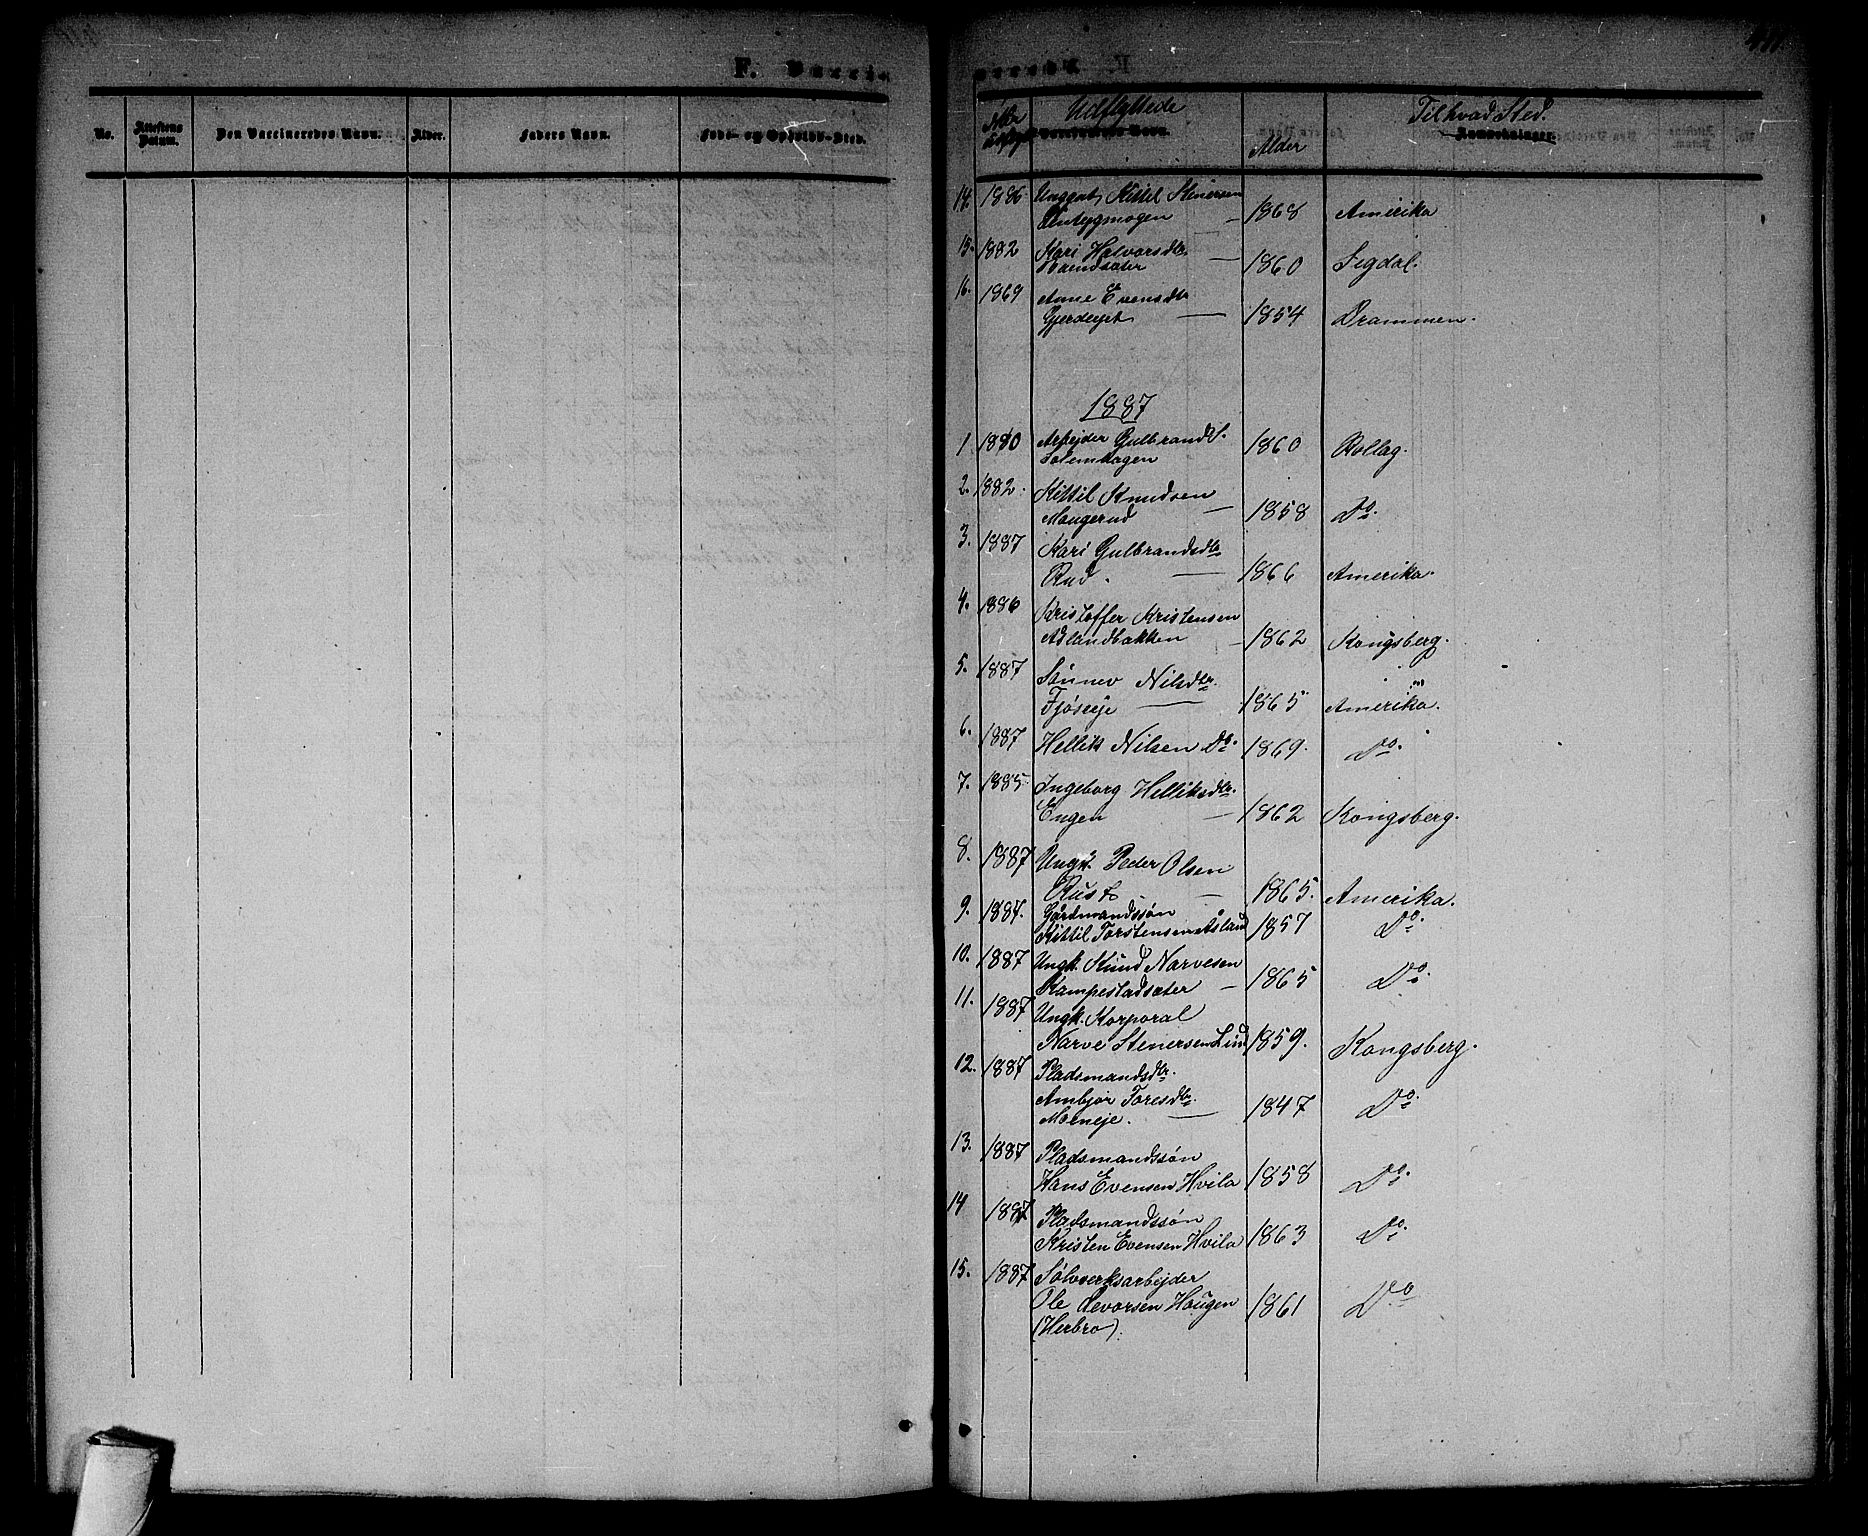 F. Vacci-
No.
Attestens Datum.
Den Vaccineredes Navn.
Alder.
Faders Navn.
Føde- og Opholds-Sted.
Udflyttede
Til hvad Sted.
Alder
Anmerkninger.
14. 1886 Ungent Kittel Stenersen
1868 Amerika
15. 1882 Kari Halvorsdtr.
1860 Sigdal.
16. 1869 Anne Evensdtr.
Gjerdeyet — 1854 Drammen.
1887
1. 1880 Arbejder Gulbrand S.
Solemhagen 1860 Rollag.
2. 1882. Kittil Knudsen
Mougerud — 1858 Do.
3. 1887 Kari Gulbrandsdtr
Rud. — 1866 Amerika.
4. 1886 Kristoffer Kristensen
Aslandbakken — 1862 Kongsberg.
5. 1887 Sønnev Nilsdtr.
Fjøseje — 1865 Amerika.
6. 1887 Hellik Nilsen Do. 1869. Do.
7. 1885. Ingeborg Helliksdtr.
Engen — 1862 Kongsberg.
8. 1887 Ungk. Peder Olsen
Rust — 1865. Amerika.
9. 1887. Gårdmandssøn
Kittil Torstensen Åsland 1857 Do.
10. 1887 Ungk. Knud Narvesen
Kampestadsæter — 1865 Do.
11. 1887 Ungk. Korporal
Narve Stenersen Lind 1859. Kongsberg.
12. 1887 Pladsmandsdtr.
Ambjør Toresdtr.
Moeneje. — 1847 Do.
13. 1887 Pladsmandssøn
Hans Evensen Hvila 1858 Do.
14 1887 Pladsmandssøn
Kristen Evensen Hvila 1863 Do.
15. 1887 Sølvverksarbejder
Ole Levorsen Haugen 1861 Do
(Herbro).